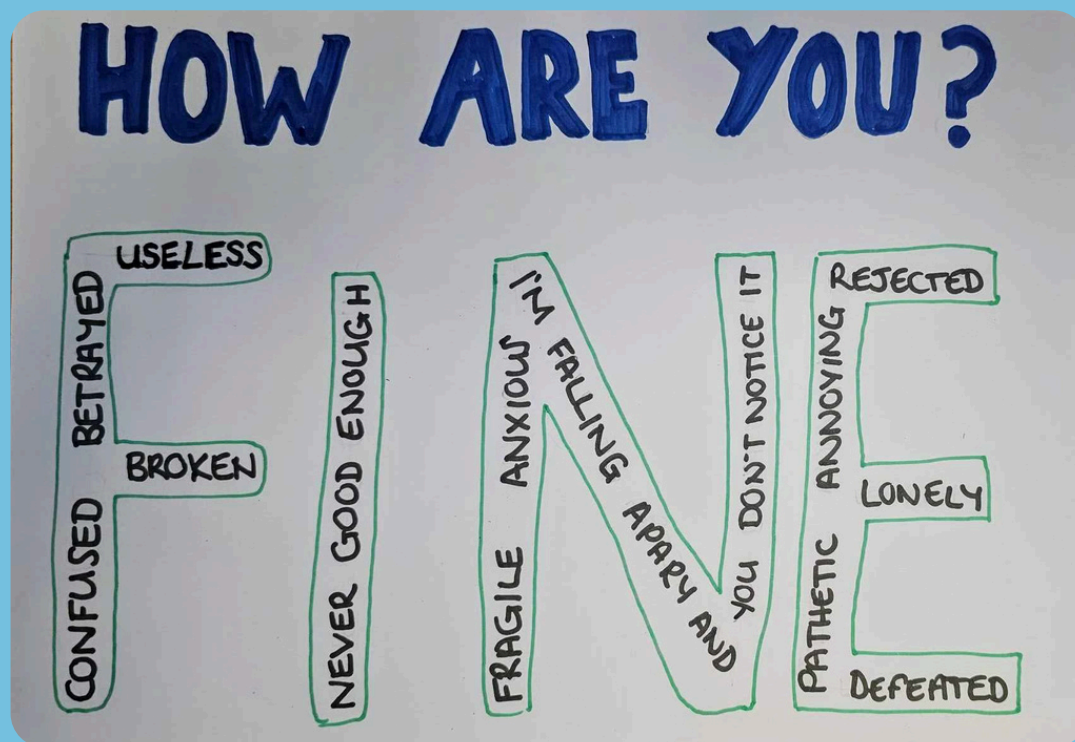 HOW ARE YOU?
CONFUSED BETRAYED
USELESS
BROKEN
NEVER GOOD ENOUGH
FRAGILE ANXIOUS
I'M FALLING APARY AND
YOU DON'T NOTICE IT
PATHETIC ANNOYING
REJECTED
LONELY
DEFEATED